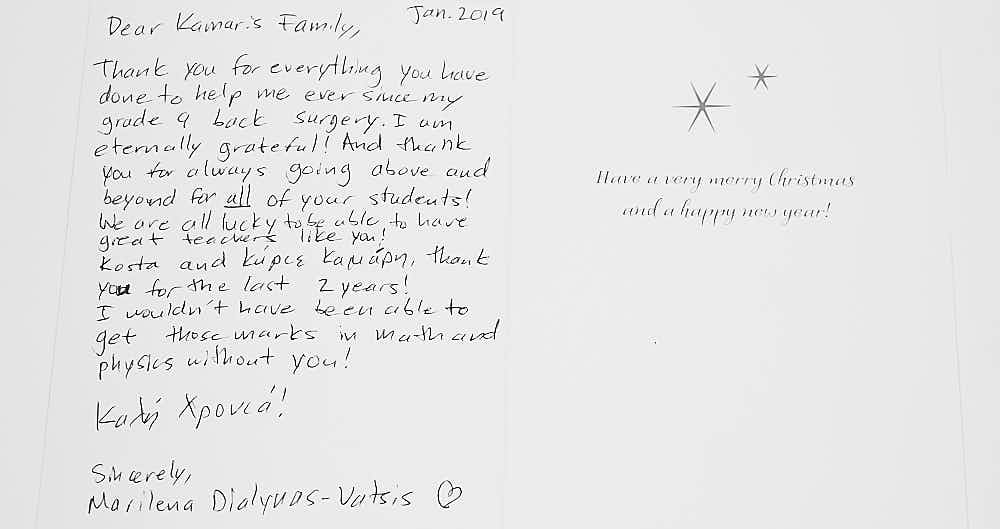 Jan. 2019
Dear Kamaris Family,
Thank you for everything you have
done to help me ever since my
grade 9 back surgery. I am
eternally grateful! And thank
you for always going above and
beyond for all of your students!
We are all lucky to be able to have
great teachers like you!
Kosta and Κύριε Καμάρη, thank
you for the last 2 years!
I wouldn't have been able to
get those marks in math and
physics without you!
Καλή Χρονιά!
Sincerely,
Marilena Dialynas-Vatsis
Have a very merry Christmas
and a happy new year!